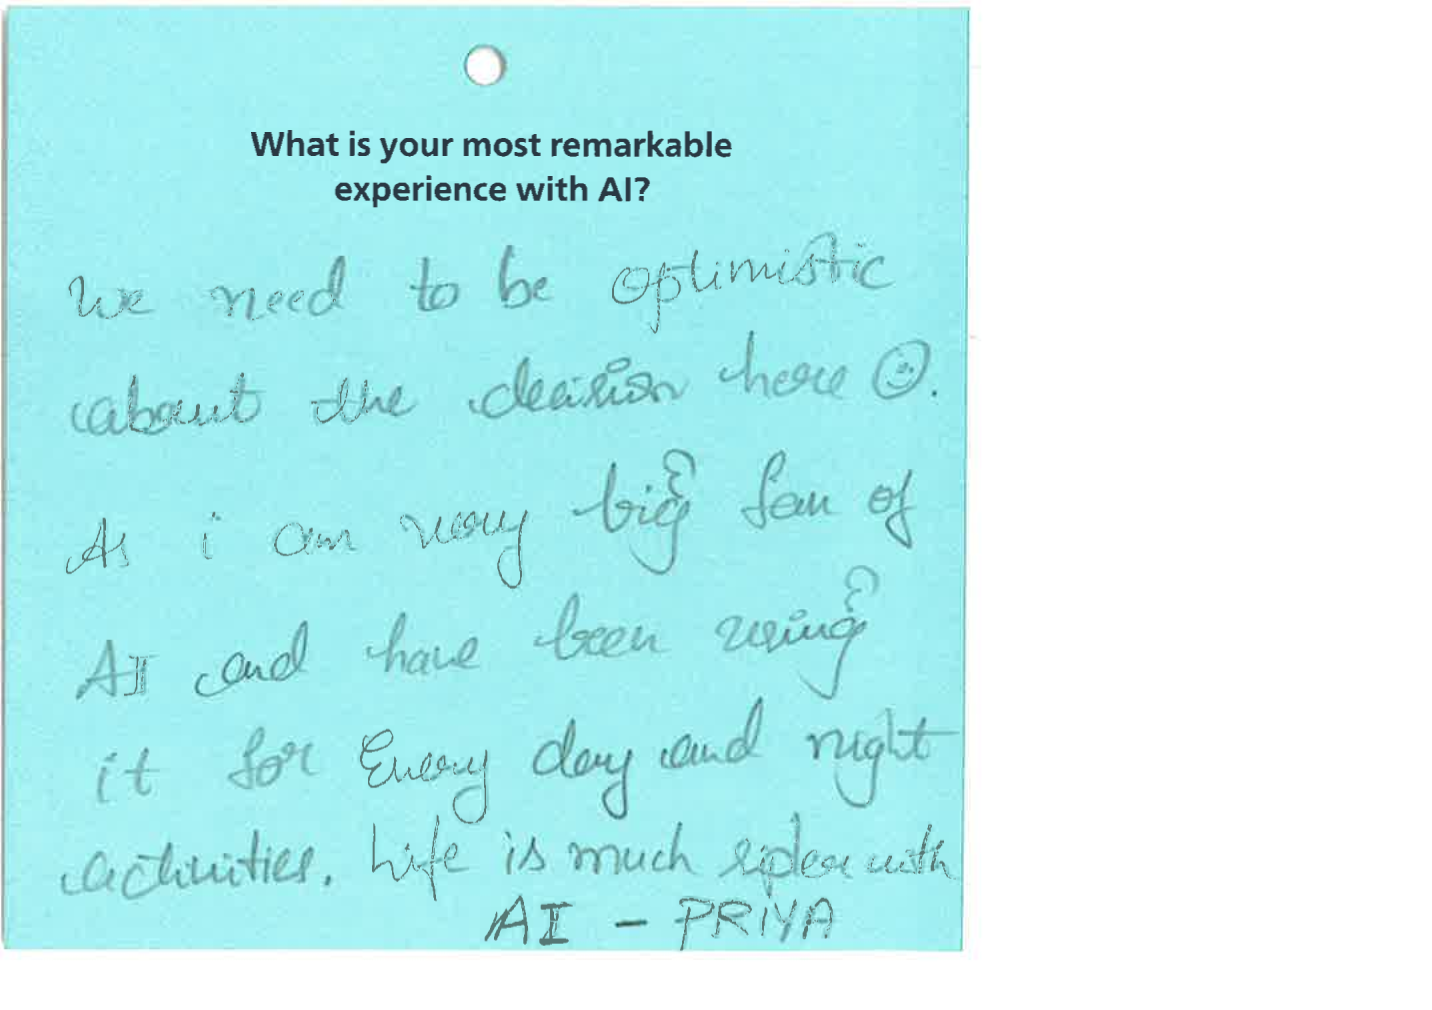 What is your most remarkable
experience with AI?
We need to be optimistic
about the decision here ☺.
As i am very big fan of
AI and have been using
it for Every day and night
activities. Life is much with
AI - PRIYA